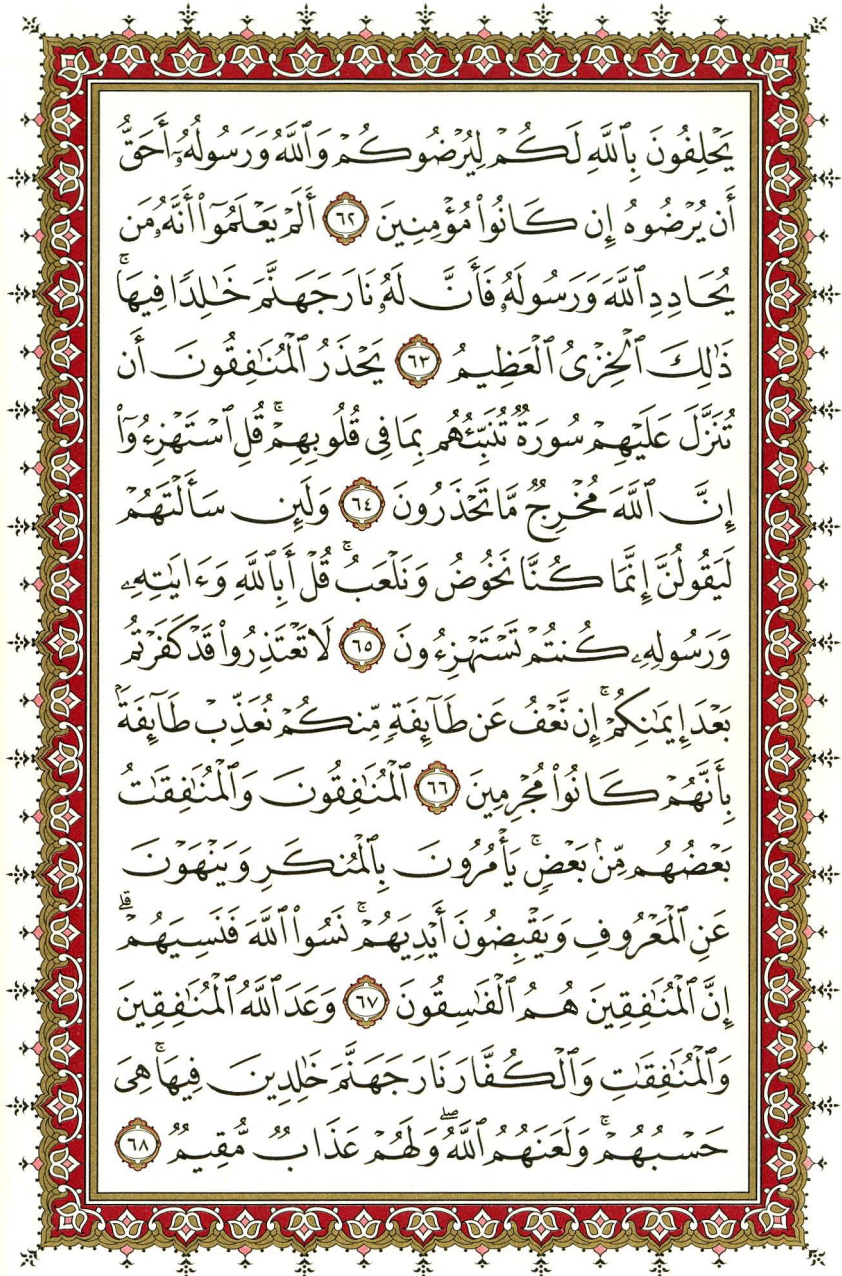 يَحْلِفُونَ بِٱللَّهِ لَكُمْ لِيُرْضُوكُمْ وَٱللَّهُ وَرَسُولُهُۥٓ أَحَقُّ
أَن يُرْضُوهُ إِن كَانُوا۟ مُؤْمِنِينَ ٦٢ أَلَمْ يَعْلَمُوٓا۟ أَنَّهُۥ مَن
يُحَادِدِ ٱللَّهَ وَرَسُولَهُۥ فَأَنَّ لَهُۥ نَارَ جَهَنَّمَ خَٰلِدًا فِيهَاۚ
ذَٰلِكَ ٱلْخِزْىُ ٱلْعَظِيمُ ٦٣ يَحْذَرُ ٱلْمُنَٰفِقُونَ أَن
تُنَزَّلَ عَلَيْهِمْ سُورَةٌ تُنَبِّئُهُم بِمَا فِى قُلُوبِهِمْۚ قُلِ ٱسْتَهْزِءُوٓا۟
إِنَّ ٱللَّهَ مُخْرِجٌ مَّا تَحْذَرُونَ ٦٤ وَلَئِن سَأَلْتَهُمْ
لَيَقُولُنَّ إِنَّمَا كُنَّا نَخُوضُ وَنَلْعَبُۚ قُلْ أَبِٱللَّهِ وَءَايَٰتِهِۦ
وَرَسُولِهِۦ كُنتُمْ تَسْتَهْزِءُونَ ٦٥ لَا تَعْتَذِرُوا۟ قَدْ كَفَرْتُم
بَعْدَ إِيمَٰنِكُمْۚ إِن نَّعْفُ عَن طَآئِفَةٍ مِّنكُمْ نُعَذِّبْ طَآئِفَةًۢ
بِأَنَّهُمْ كَانُوا۟ مُجْرِمِينَ ٦٦ ٱلْمُنَٰفِقُونَ وَٱلْمُنَٰفِقَٰتُ
بَعْضُهُم مِّنۢ بَعْضٍۚ يَأْمُرُونَ بِٱلْمُنكَرِ وَيَنْهَوْنَ
عَنِ ٱلْمَعْرُوفِ وَيَقْبِضُونَ أَيْدِيَهُمْۚ نَسُوا۟ ٱللَّهَ فَنَسِيَهُمْۗ
إِنَّ ٱلْمُنَٰفِقِينَ هُمُ ٱلْفَٰسِقُونَ ٦٧ وَعَدَ ٱللَّهُ ٱلْمُنَٰفِقِينَ
وَٱلْمُنَٰفِقَٰتِ وَٱلْكُفَّارَ نَارَ جَهَنَّمَ خَٰلِدِينَ فِيهَاۚ هِىَ
حَسْبُهُمْۚ وَلَعَنَهُمُ ٱللَّهُۖ وَلَهُمْ عَذَابٌ مُّقِيمٌ ٦٨